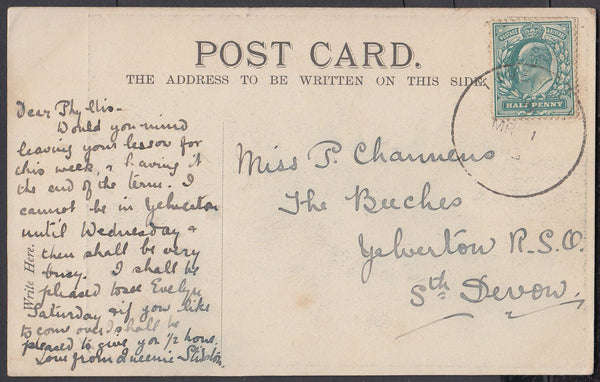 POST CARD.
THE ADDRESS TO BE WRITTEN ON THIS SIDE.
HALF PENNY
MR 1
Dear Phyllis -
Would you mind
leaving your lesson for
this week, & having it
the end of the term. I
cannot be in Yelverton
until Wednesday &
then shall be very
busy. I shall be
pleased to see Evelyn
Saturday & if you like
to come over I shall be
pleased to give you 1/2 hour.
Love from Queenie
Write Here.
Miss P.
The Beeches
Yelverton R.S.O.
Sth Devon.